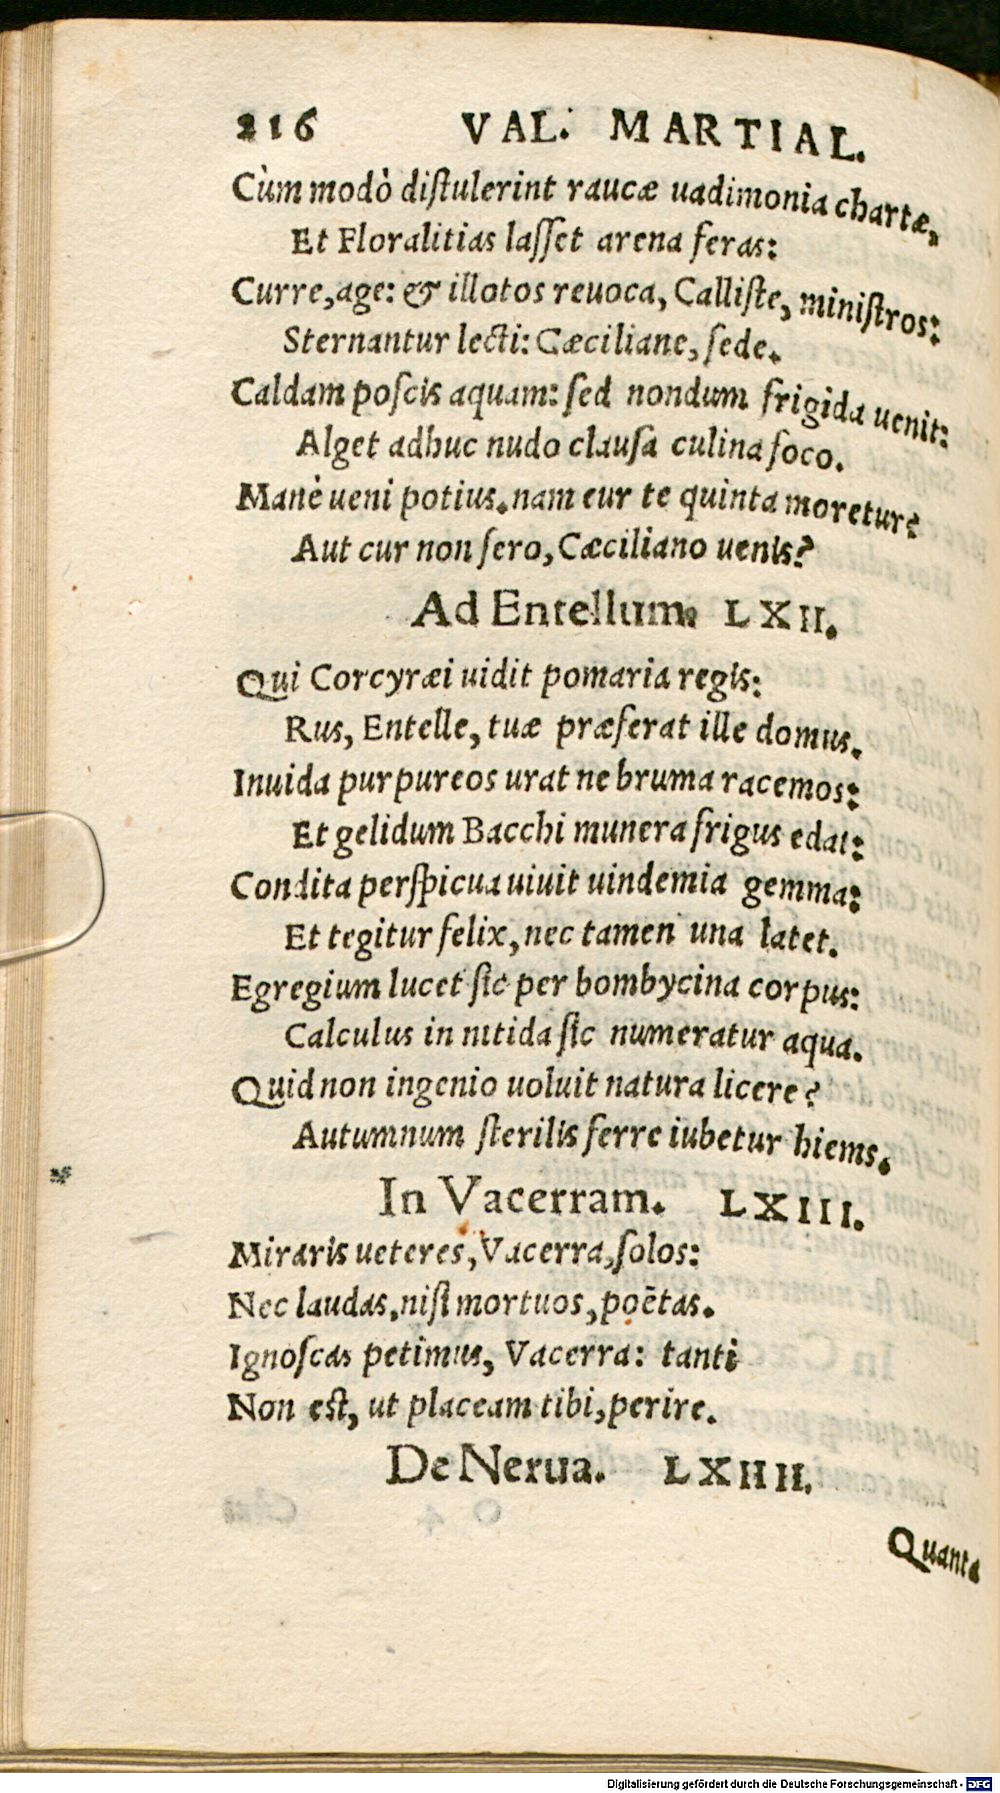 216 VAL. MARTIAL.
Cùm modò distulerint raucæ uadimonia chartæ,
Et Floralitias lasset arena feras:
Curre, age: & illotos reuoca, Calliste, ministros:
Sternantur lecti: Cæciliane, sede.
Caldam poscis aquam: sed nondum frigida uenit:
Alget adhuc nudo clausa culina foco.
Manè ueni potius. nam eur te quinta moretur?
Aut cur non sero, Cæciliano uenis?
Ad Entellum. LXII.
Qui Corcyræi uidit pomaria regis:
Rus, Entelle, tuæ præferat ille domus.
Inuida purpureos urat ne bruma racemos:
Et gelidum Bacchi munera frigus edat:
Condita perspicua uiuit uindemia gemma:
Et tegitur felix, nec tamen una latet.
Egregium lucet sic per bombycina corpus:
Calculus in nitida sic numeratur aqua.
Quid non ingenio uoluit natura licere?
Autumnum sterilis ferre iubetur hiems.
In Vacerram. LXIII.
Miraris ueteres, Vacerra, solos:
Nec laudas, nisi mortuos, poëtas.
Ignoscas petimus, Vacerra: tanti
Non est, ut placeam tibi, perire.
De Nerua. LXIIII.
Quanta
Digitalisierung gefördert durch die Deutsche Forschungsgemeinschaft - DFG